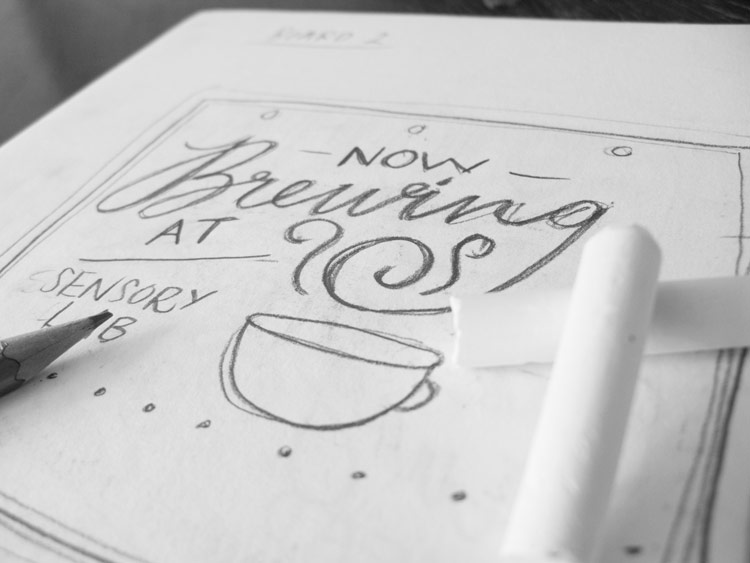 BOARD 2
NOW
Brewing
AT
SENSORY